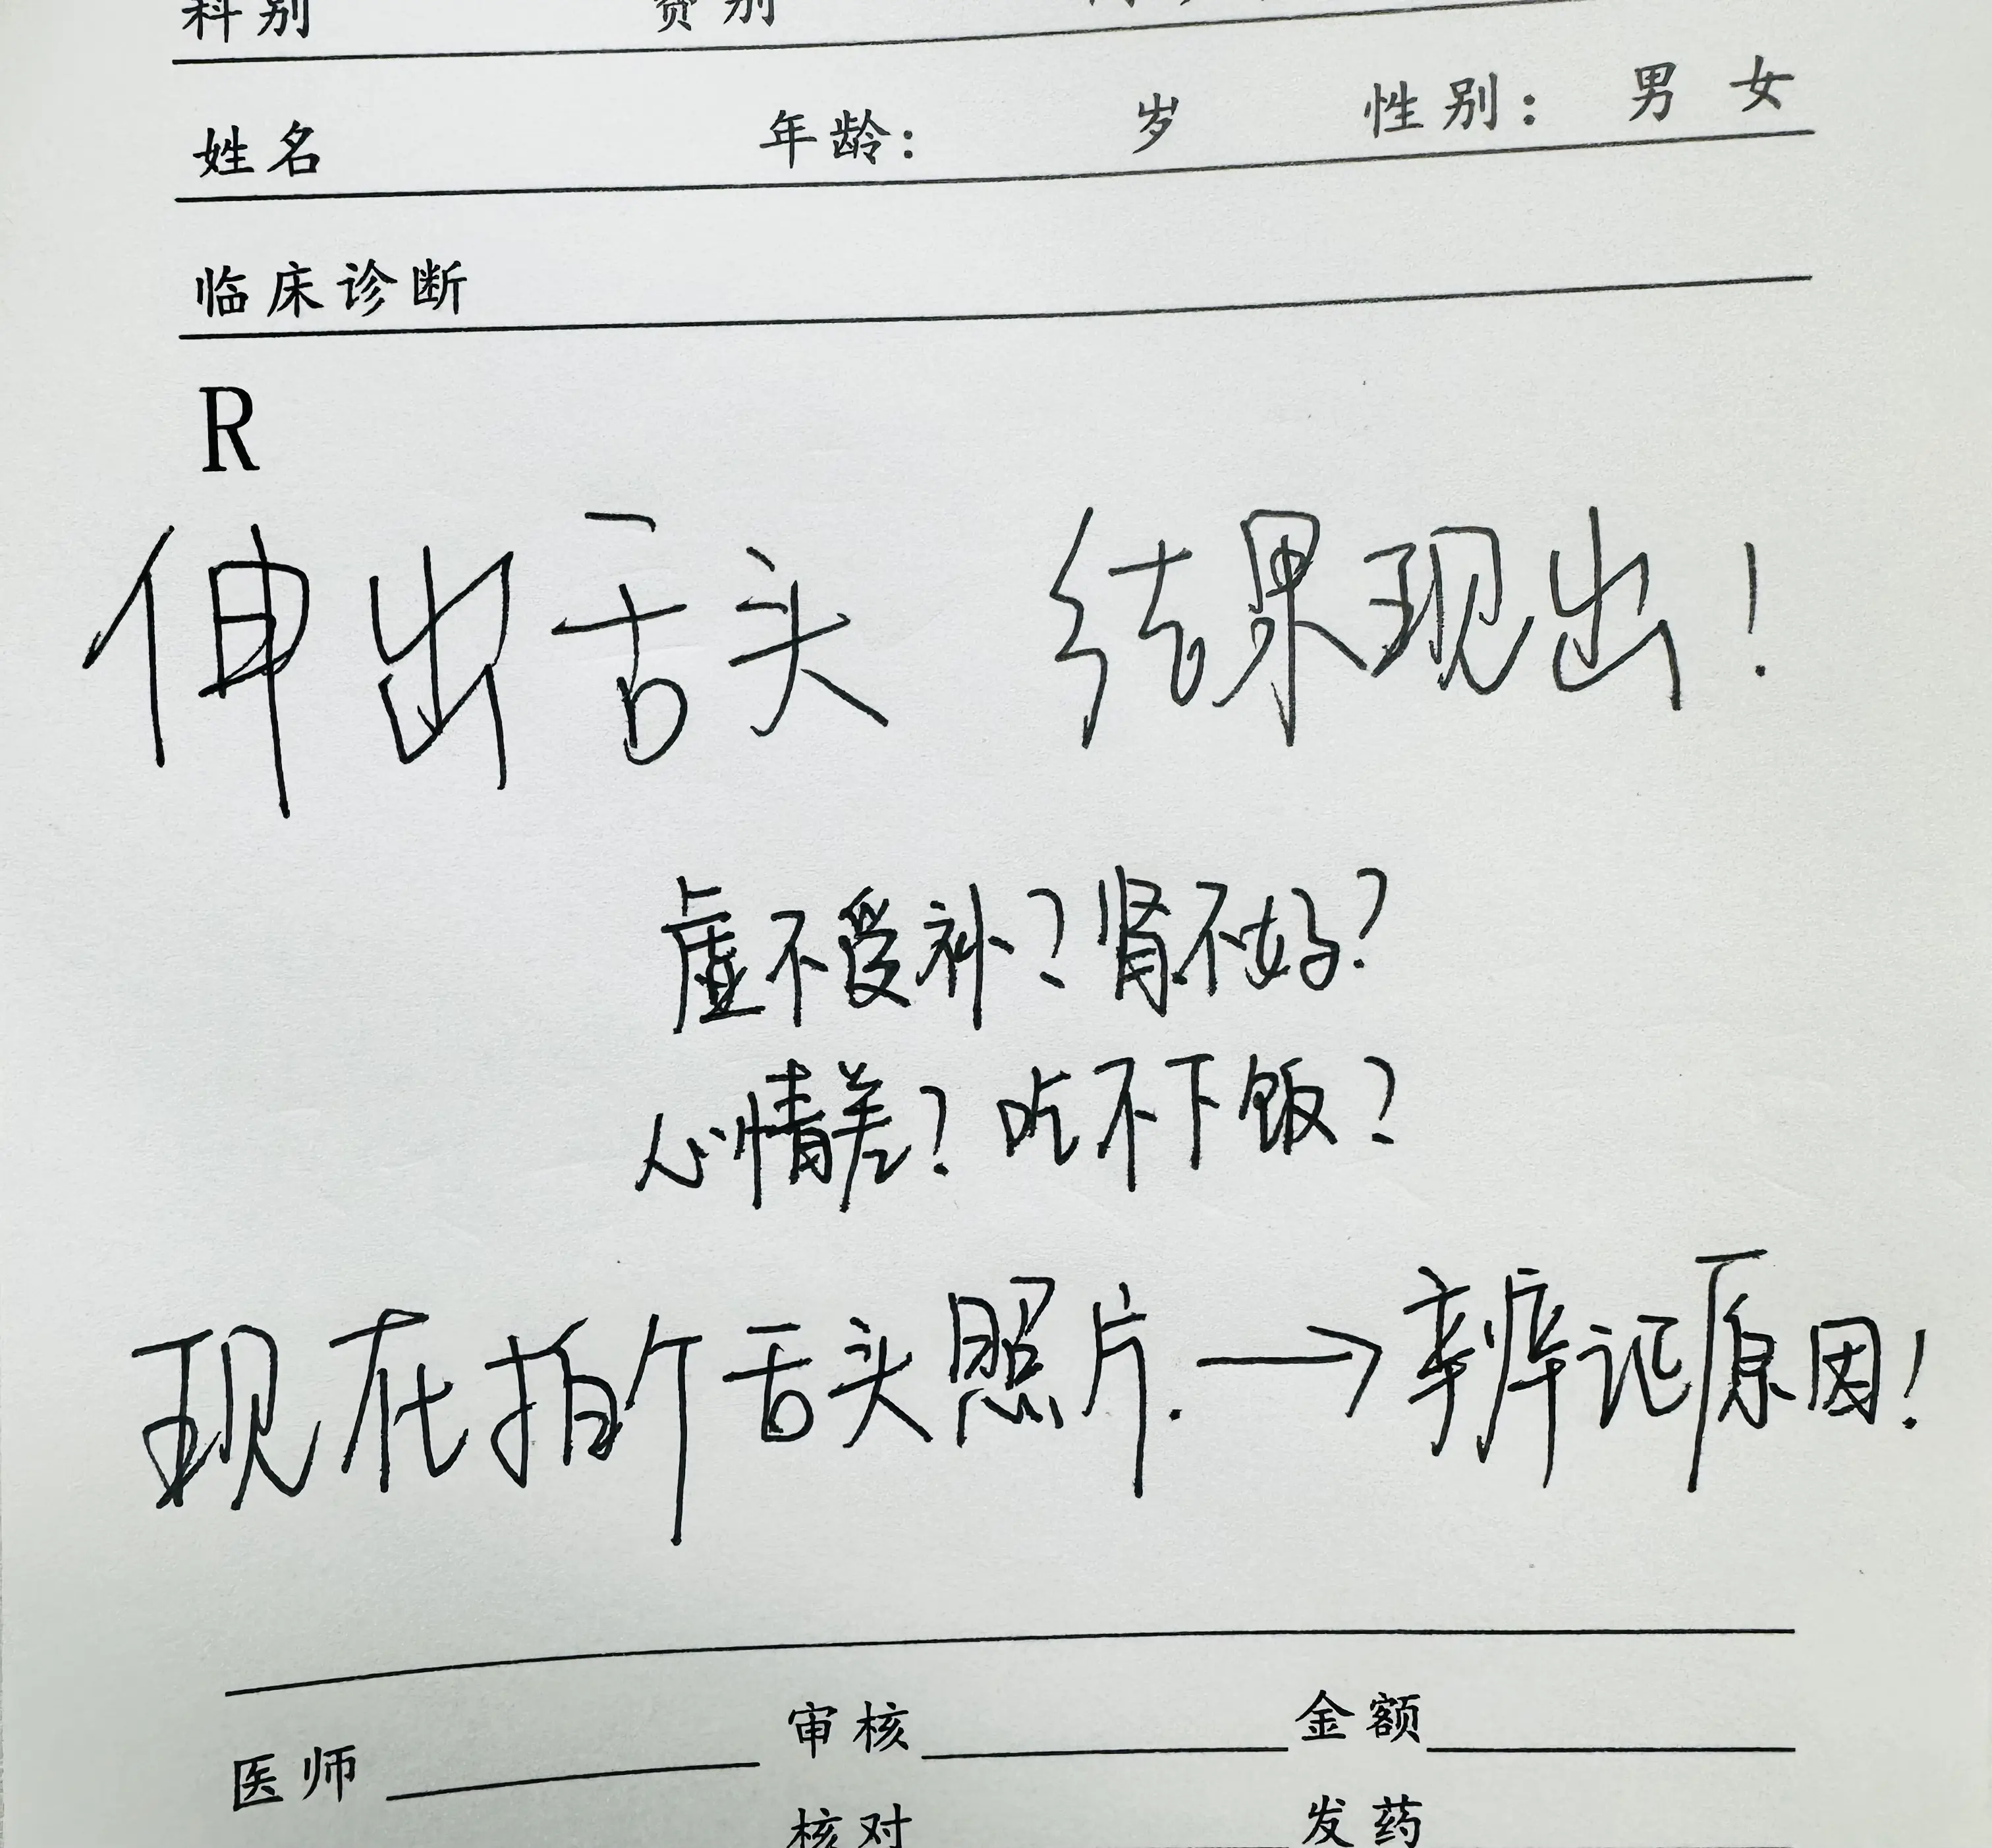 科别 费别
姓名 年龄: 岁 性别: 男 女
临床诊断
R
伸出舌头 结果现出!
虚不受补?肾不好?
心情差?吃不下饭?
现在拍个舌头照片.→辨证原因!
医师 审核 金额
核对 发药